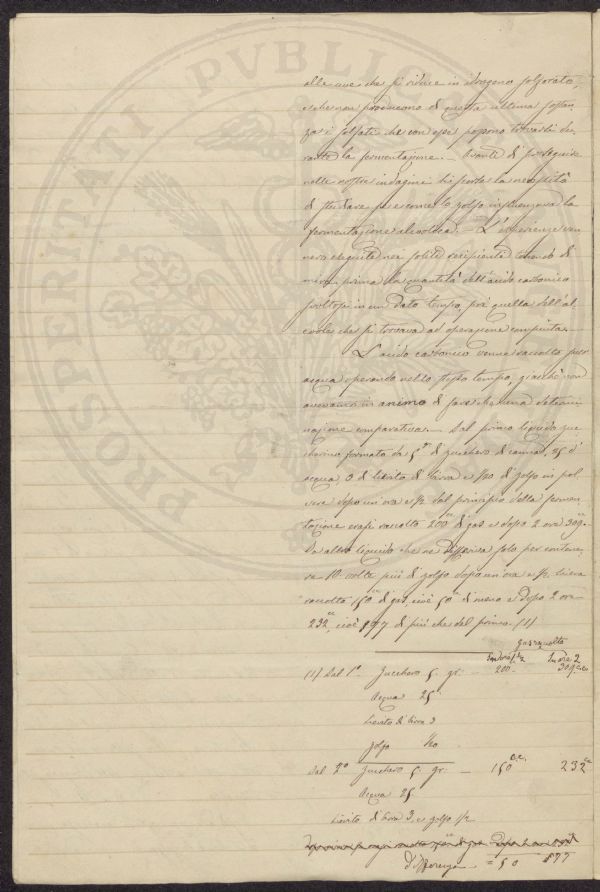 PROSPERITATI PVBLICAE
alle uve che si riduce in idrogeno solforato,
e che non producono di questa ultima sostan
za i solfati che con essi possono trovarsi du
rante la fermentazione. — Avanti di proseguire
nelle nostre indagini si presentò la necessità
di studiare se e come lo zolfo influenzava la
fermentazione alcoolica. — L'esperienze ven
nero eseguite nei soliti recipienti tenendo di
mira prima la quantità dell'acido carbonico
svoltosi in un dato tempo, poi quella dell'al
cool che si trovava ad operazione compiuta.
L'acido carbonico venne raccolto sull'
acqua operando nello stesso tempo, giacchè non
avevamo in animo di fare che una determi
nazione comparativa. — Dal primo liquido zuc
cherino formato da 5 gr di zucchero di canna, 25 d'
acqua 3 di lievito di birra e 1/20 di zolfo in pol
vere dopo un'ora e 1/2 dal principio della fermen
tazione erasi raccolto 200 cc di gas e dopo 2 ore 309
Da altro liquido che ne differiva solo per contene
re 10 volte più di zolfo dopo un'ora e 1/2 si era
raccolto 150 cc di gas, cioè 50 cc di meno e dopo 2 ore
232 cc, cioè 77 di più che dal primo. (1)
gas raccolto
In ore 1 1/2 In ore 2
(1) Dal 1° Zucchero 5. gr. — 200 — 309 cc
Acqua 25
Lievito di birra 3
Zolfo 1/20
Dal 2° Zucchero 5. gr. — 150 c.c. 232 cc
Acqua 25.
Lievito di birra 3. e zolfo 1/2
differenza = 50 77